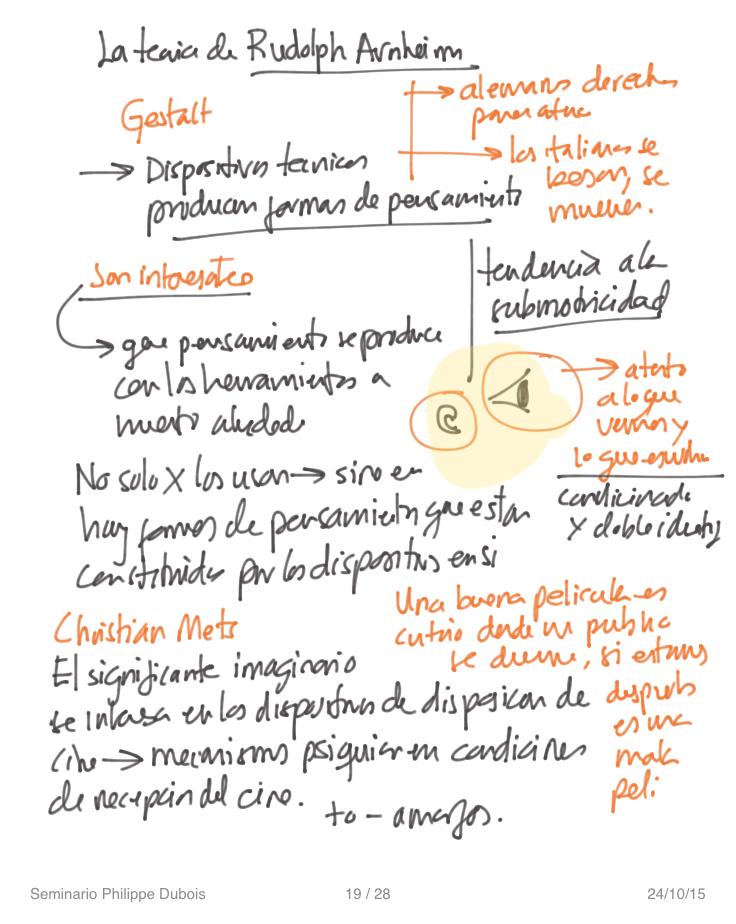 La tecnica de Rudolph Arnheim
Gestalt
→ Dispositivos tecnicos
producen formas de pensamiento
→ alemanes derechos
→ los italianos se
besan, se
mueven.
Son interesantes
→ que pensamiento se produce
con las herramientas a
nuestro alrededor
tendencia a la
submotricidad
→ atento
a lo que
vemos y
lo que escucha
condicionado
x doble identif
No solo x los usan → sino en
hay formas de pensamiento que estan
constituidas por los dispositivos en si
Christian Metz
El significante imaginario
se interesa en los dispositivos de disposicion de
cine → mecanismos psiquicos en condiciones
de recepcion del cine.
Una buena pelicula es
donde un publico
se duerme, si estamos
despiertos
es una
mala
peli
Seminario Philippe Dubois
19 / 28
24/10/15